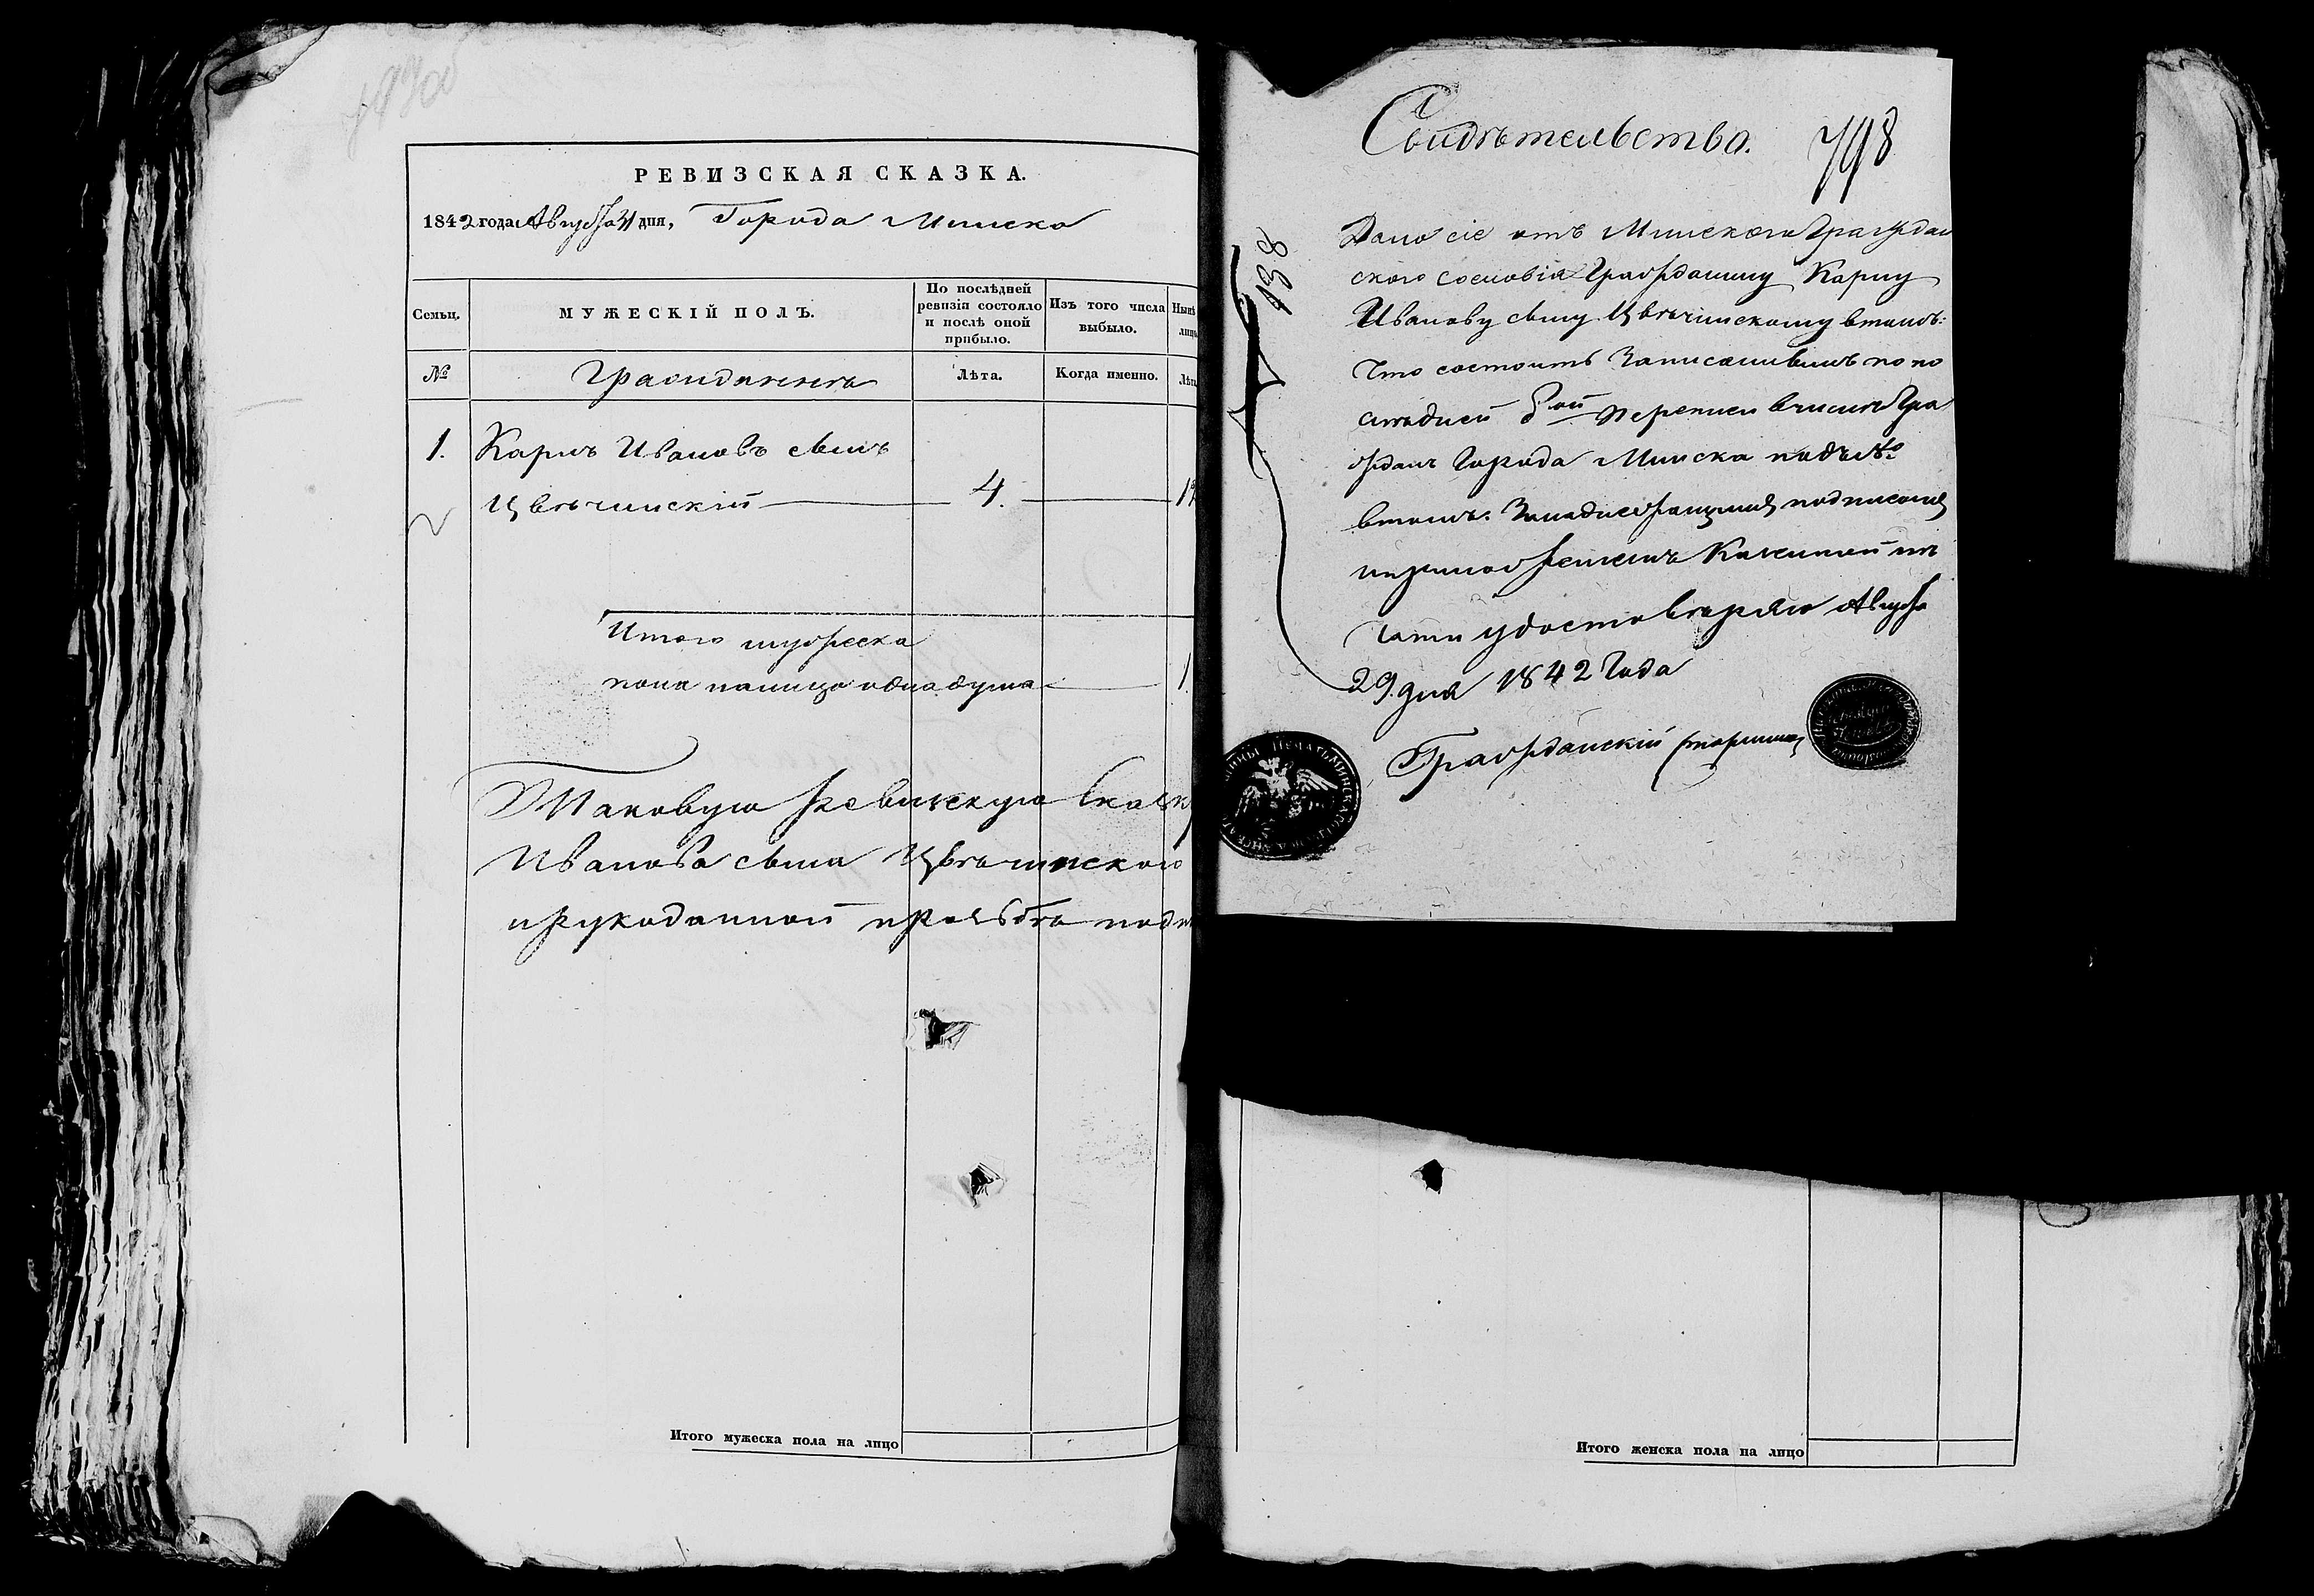 РЕВИЗСКАЯ СКАЗКА.
1842 года Августа 31 дня, Города Минска
Семьи.
МУЖЕСКІЙ ПОЛЪ.
По послѣдней ревизіи состояло и послѣ оной прибыло.
Изъ того числа выбыло.
Нынѣ лицо
№
Гражданинъ
Лѣта.
Когда именно.
Лѣта
1.
Карпъ Ивановъ сынъ
Цвѣчинскій
4.
Итого мужеска
пола налицо одна душа
1.
Таковую ревизскую сказку
Иванова сына Цвѣчинского
ирукоданной прозьбѣ подп
Итого мужеска пола на лицо
Свидѣтельство.
798
138
Дано сіе отъ Минского Граждан
ского сословія Гражданину Карпу
Иванову сыну Цвѣчинскому втомъ:
Что состоитъ Записаннымъ по по
слѣдней 8ой переписи вчислѣ Гра
жданъ Города Минска подъ №
втомъ. Заподлежащимъ подписомъ
иприложениемъ Казенной пе
чати удостовѣряю Августа
29 дня 1842 Года
Гражданскій старшина
Итого женска пола на лицо